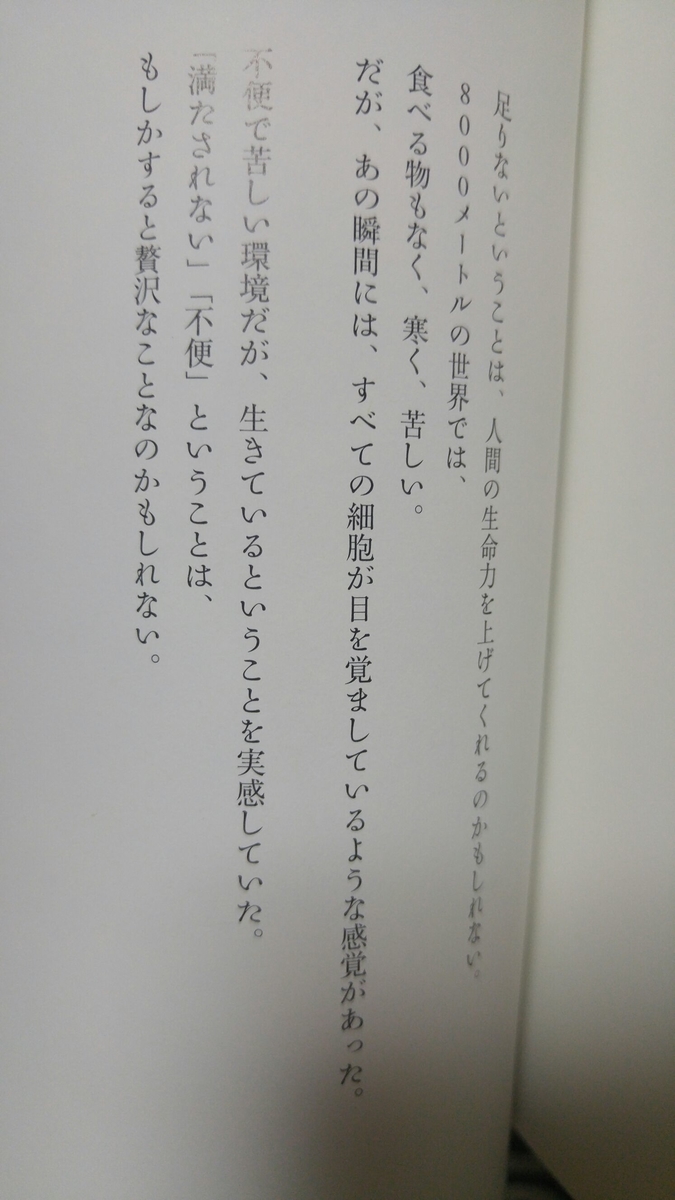 足りないということは、人間の生命力を上げてくれるのかもしれない。
8000メートルの世界では、
食べる物もなく、寒く、苦しい。
だが、あの瞬間には、すべての細胞が目を覚ましているような感覚があった。
不便で苦しい環境だが、生きているということを実感していた。
「満たされない」「不便」ということは、
もしかすると贅沢なことなのかもしれない。